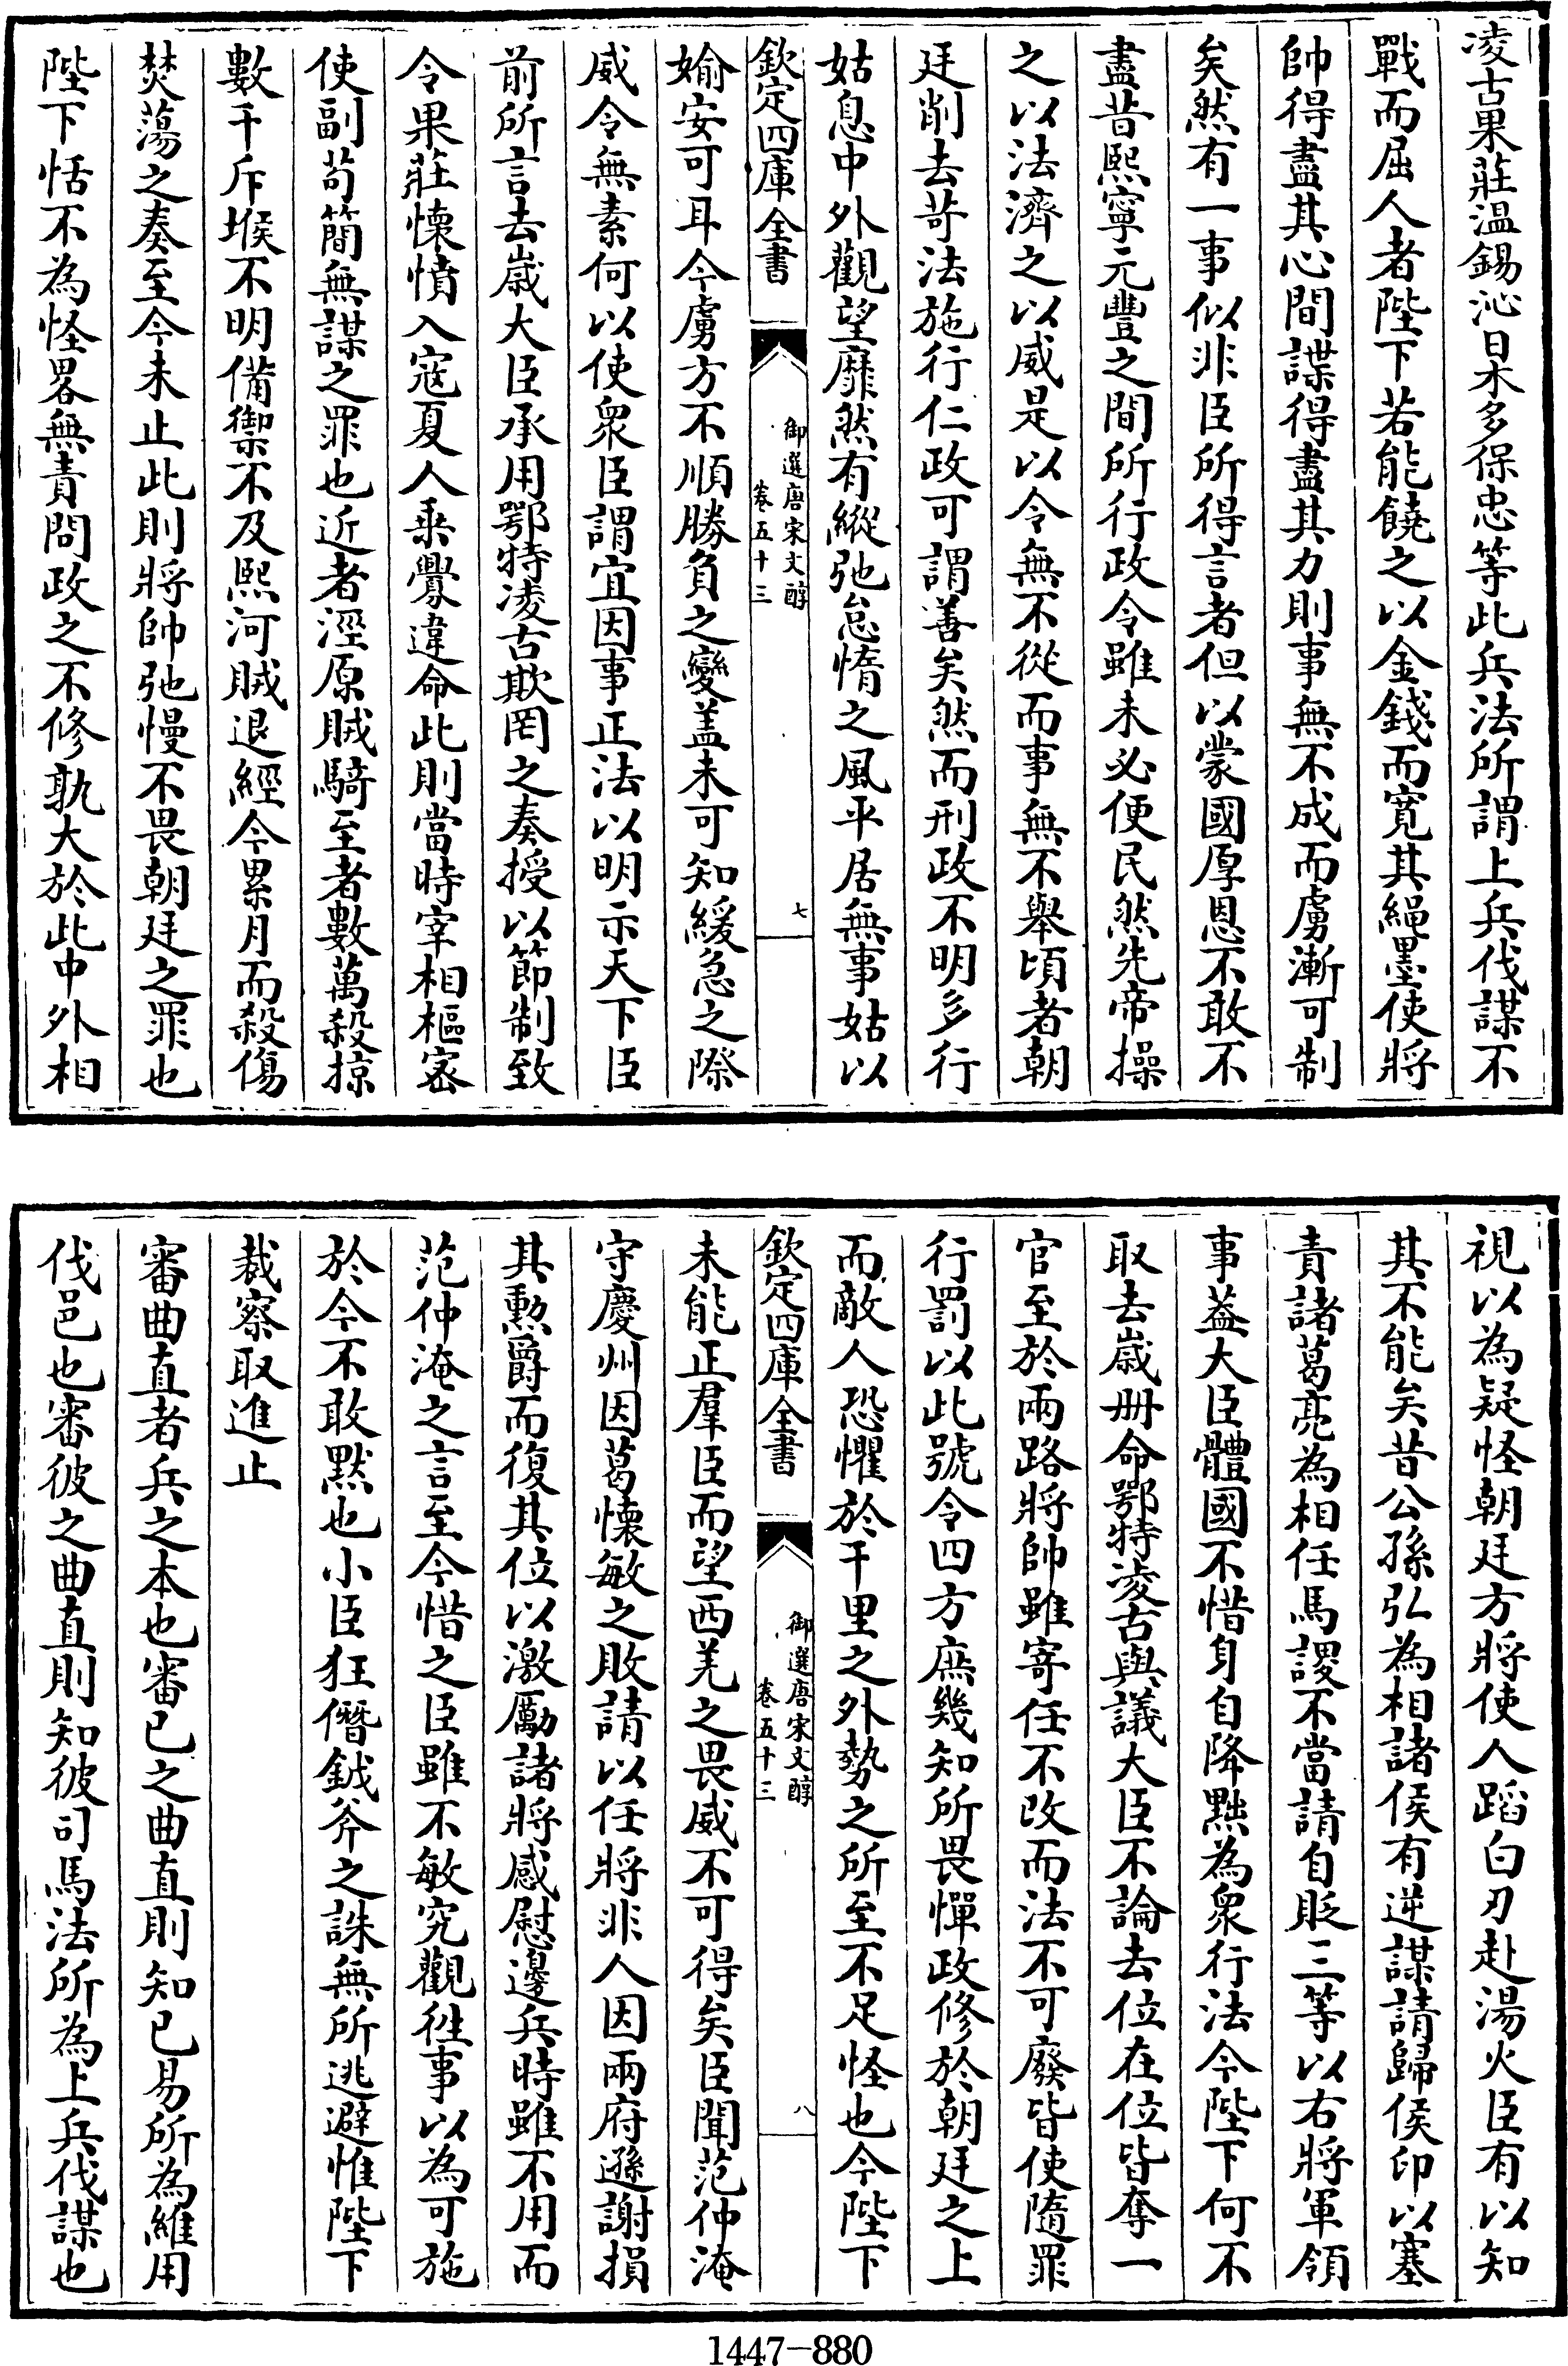 凌古果莊温錫沁日木多保忠等此兵法所謂上兵伐謀不
戰而屈人者陛下若能饒之以金錢而寛其繩墨使將
帥得盡其心間諜得盡其力則事無不成而虜漸可制
矣然有一事似非臣所得言者但以蒙國厚恩不敢不
盡昔熙寧元豐之間所行政令雖未必便民然先帝操
之以法濟之以威是以令無不從而事無不舉頃者朝
廷削去苛法施行仁政可謂善矣然而刑政不明多行
姑息中外觀望靡然有縱弛怠惰之風平居無事姑以
欽定四庫全書
御選唐宋文醇
卷五十三
七
媮安可耳今虜方不順勝負之變盖未可知緩急之際
威令無素何以使衆臣謂宜因事正法以明示天下臣
前所言去嵗大臣承用鄂特凌古欺罔之奏授以節制致
令果莊懐憤入寇夏人乗釁違命此則當時宰相樞密
使副苟簡無謀之罪也近者涇原賊騎至者數萬殺掠
數千斥堠不明備禦不及熙河賊退經今累月而殺傷
焚蕩之奏至今未止此則將帥弛慢不畏朝廷之罪也
陛下恬不為怪畧無責問政之不修孰大於此中外相
視以為疑怪朝廷方將使人蹈白刃赴湯火臣有以知
其不能矣昔公孫弘為相諸侯有逆謀請歸侯印以塞
責諸葛亮為相任馬謖不當請自貶三等以右將軍領
事葢大臣體國不惜身自降黜為衆行法今陛下何不
取去嵗册命鄂特凌古與議大臣不論去位在位皆奪一
官至於兩路將帥雖寄任不改而法不可廢皆使隨罪
行罰以此號令四方庶幾知所畏憚政修於朝廷之上
而敵人恐懼於千里之外勢之所至不足怪也今陛下
欽定四庫全書
御選唐宋文醇
卷五十三
八
未能正羣臣而望西羌之畏威不可得矣臣聞范仲淹
守慶州因葛懐敏之敗請以任將非人因兩府遜謝損
其勲爵而復其位以激厲諸將感慰邊兵時雖不用而
范仲淹之言至今惜之臣雖不敏究觀徃事以為可施
於今不敢黙也小臣狂僭鉞斧之誅無所逃避惟陛下
裁察取進止
審曲直者兵之本也審已之曲直則知已易所為維用
伐邑也審彼之曲直則知彼司馬法所為上兵伐謀也
1447-880